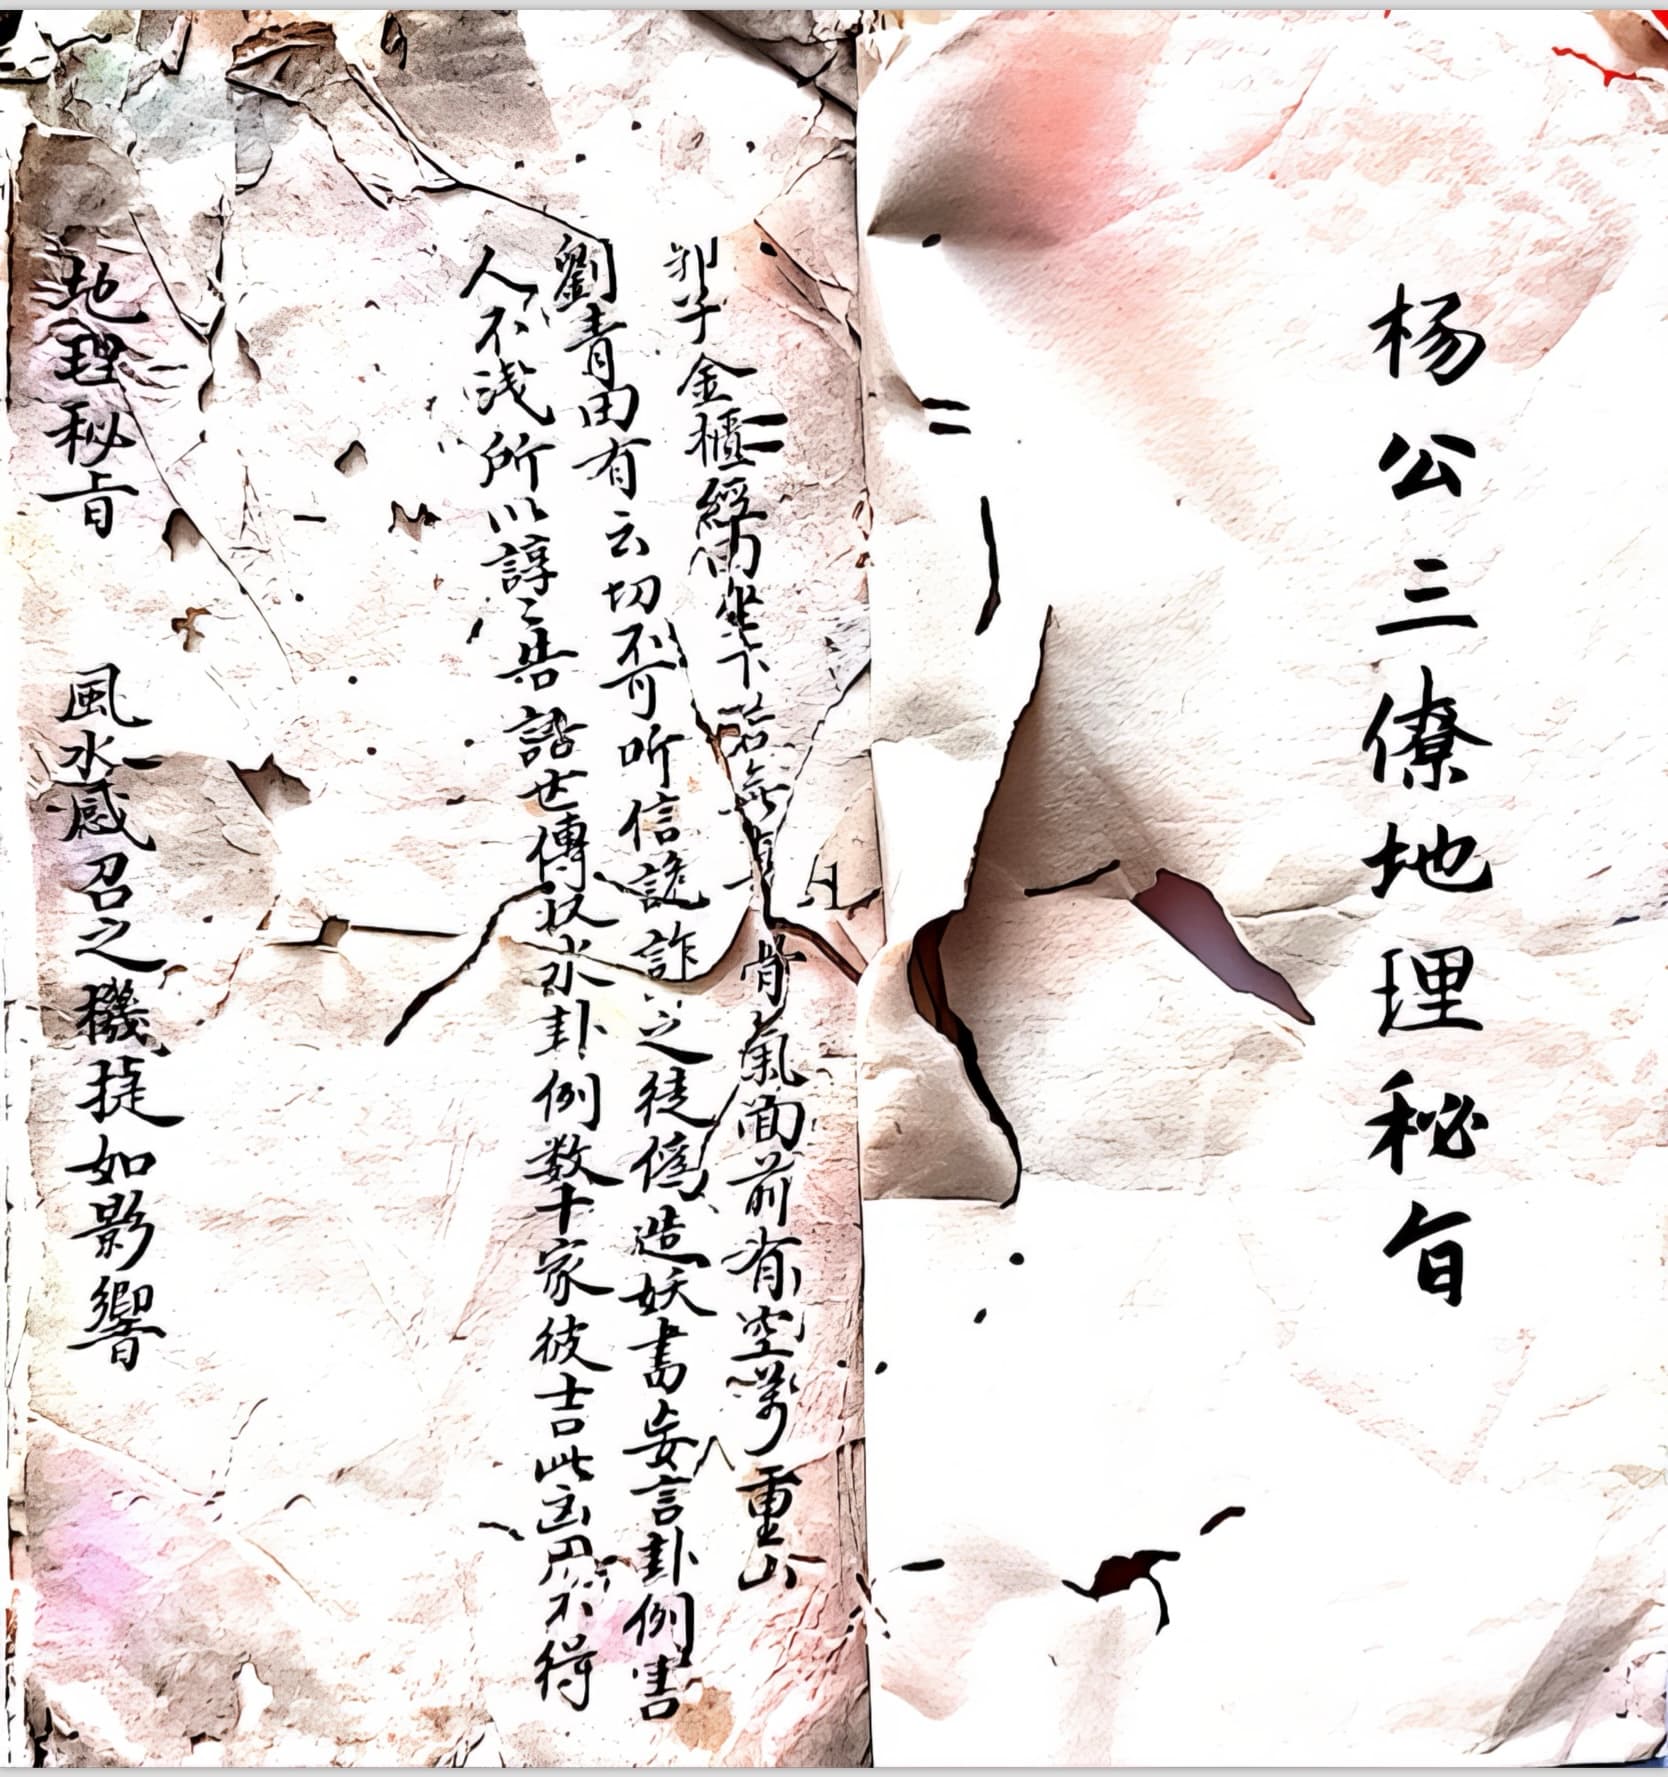 杨公三僚地理秘旨
郭子金櫃經內坐下若無真骨氣面前有空萬重山
劉青田有云切不可听信詭詐之徒僞造妖書妄言卦例害
人不浅所以諄〻告誥世傳扶水卦例数十家彼吉此凶用不得
地理秘旨 風水感召之機捷如影響